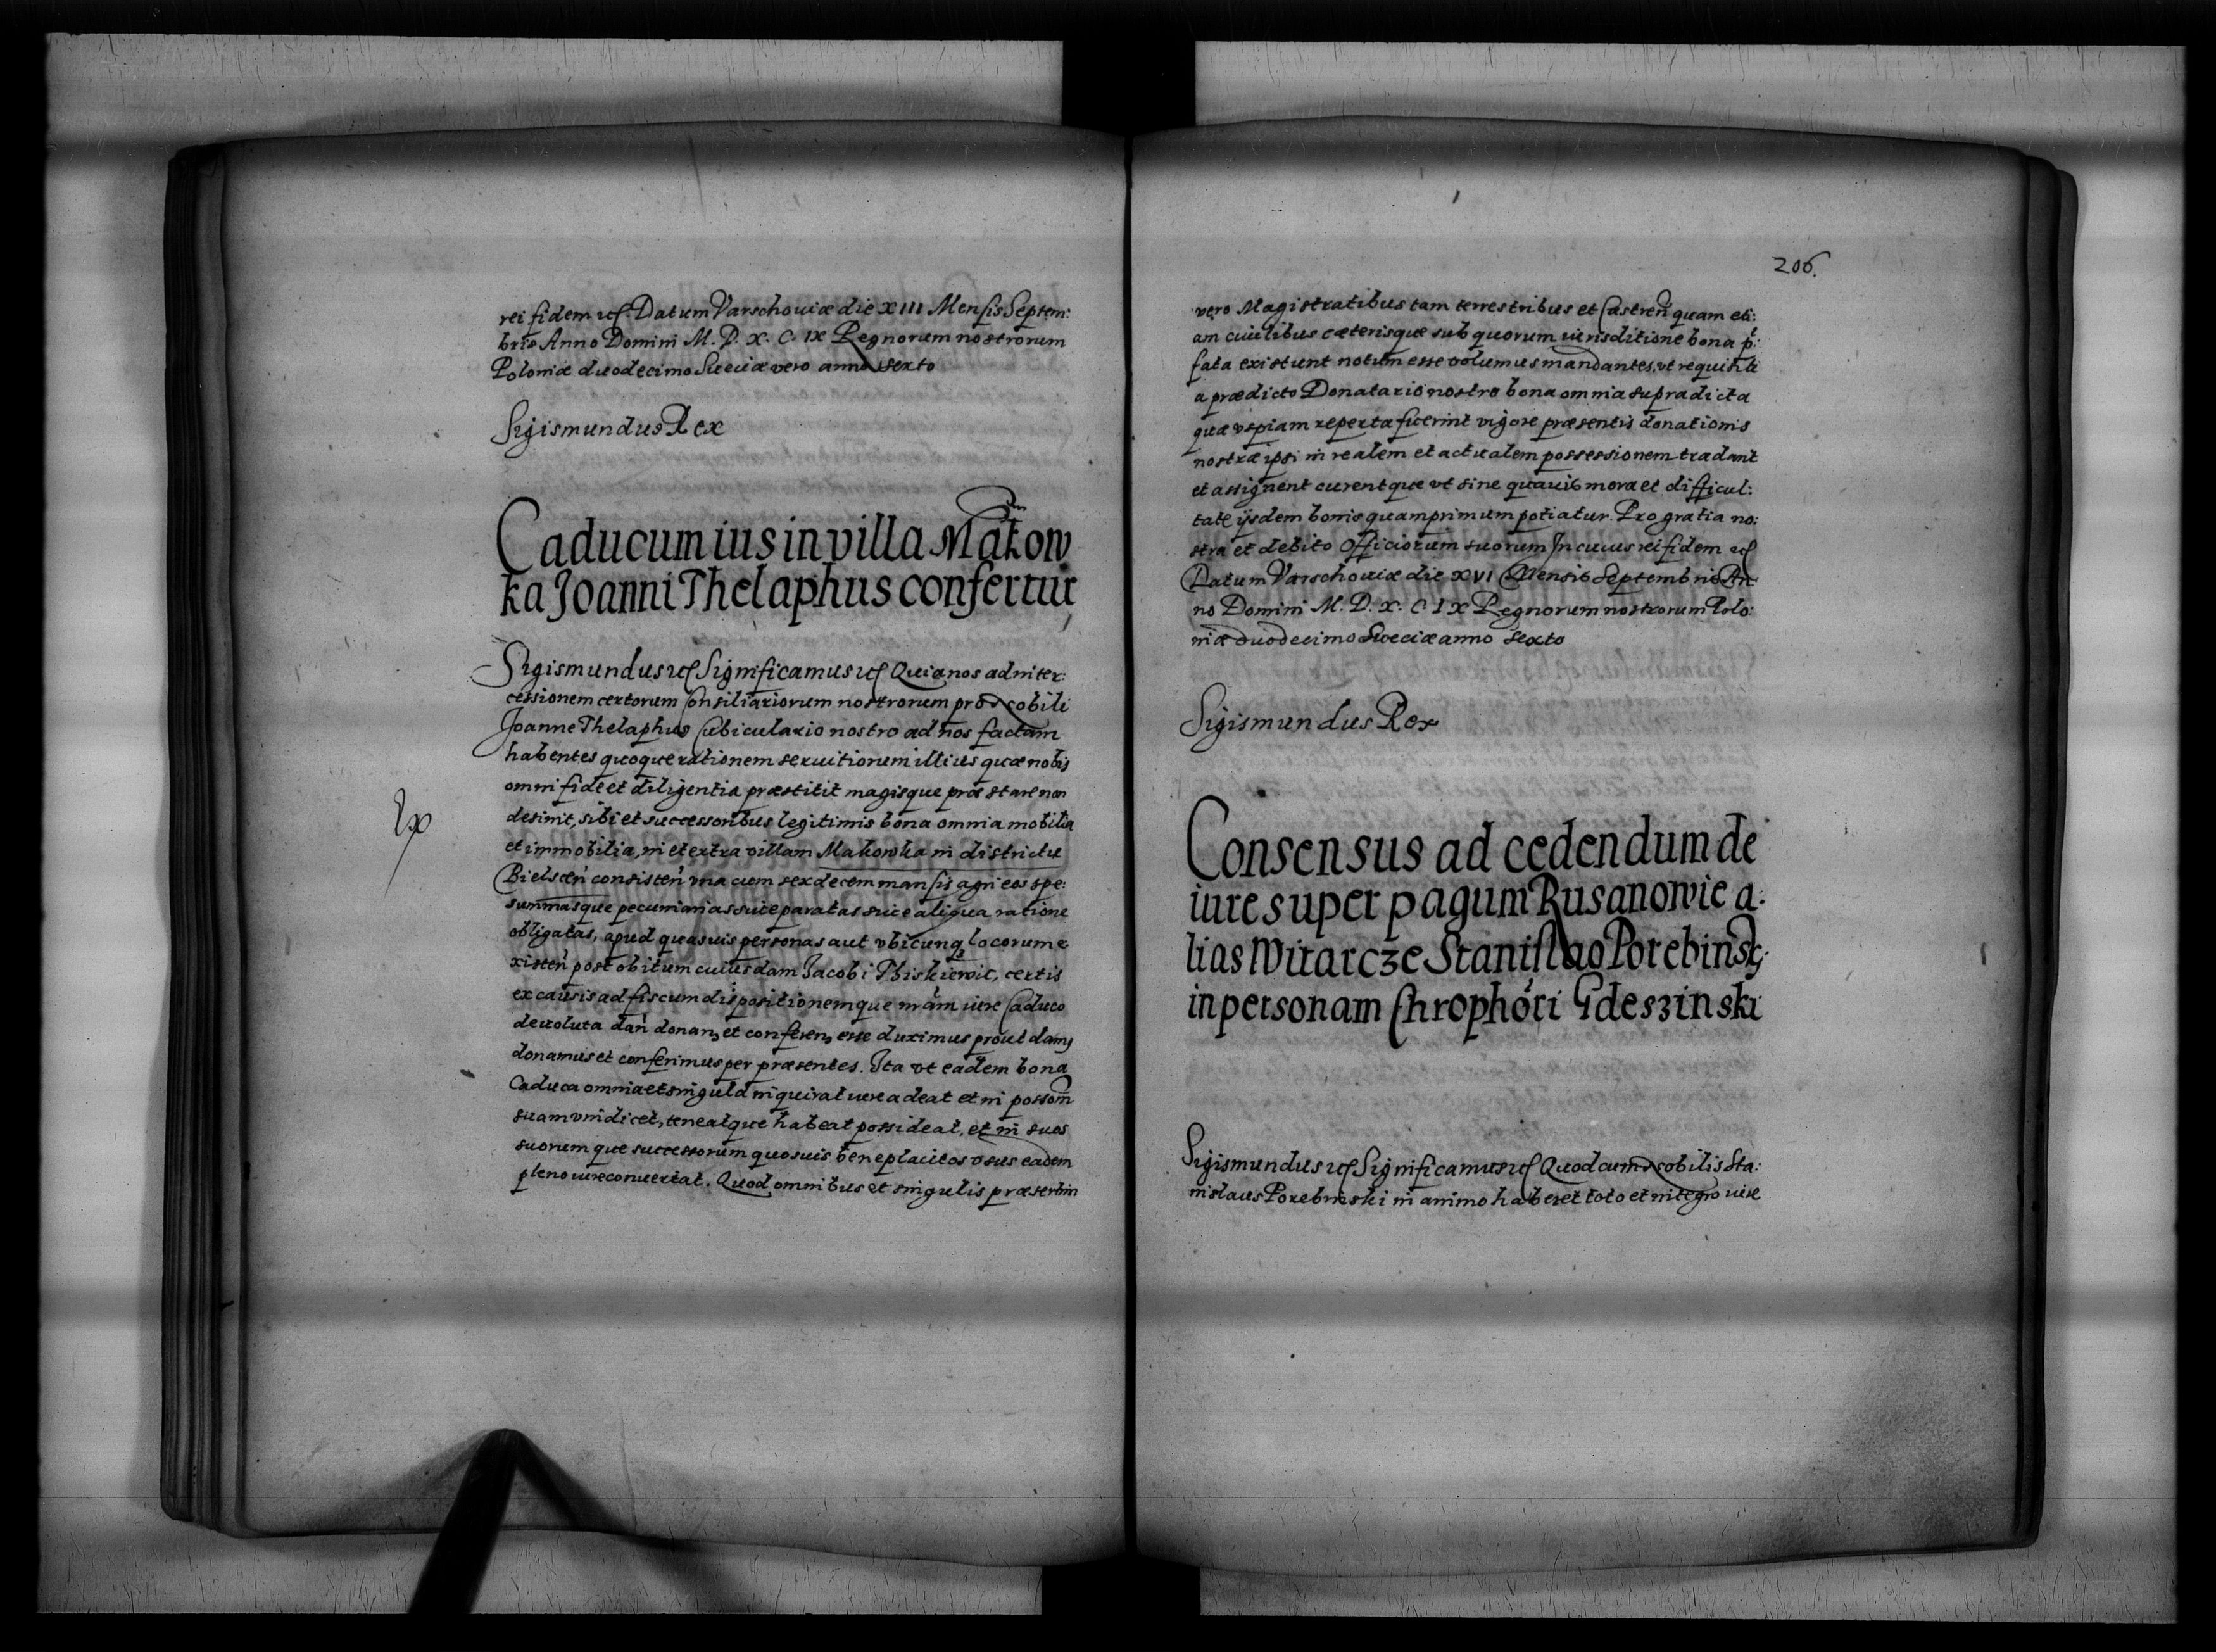 rei fidem etc Datum Varschouiæ die XIII Mensis Septem:
bris Anno Domini M. D. X. C. IX Regnorum nostrorum
Poloniæ duodecimo Sueciæ vero anno sexto
Sigismundus Rex
Caducum ius in villa Makow
ka Joanni Thelaphus confertur
Sigismundus etc Significamus etc Quia nos ad niter:
cessionem certorum Consiliariorum nostrorum pro Nobili
Joanne Thelaphus Cubiculario nostro ad nos factam
habentes quoque rationem seruitiorum illius quæ nobis
omni fide et diligentia præstitit magisque præstare non
desinit, sibi et successoribus legitimis bona omnia mobilia
et immobilia, in et extra villam Makowka in districtu
Bielscen̄ consisten̄ vna cum sexdecem mansis agri eos spe:
summasque pecuniarias siue paratas siue aliqua ratione
obligatas, apud quasuis personas aut vbicunq locorum e
xisten̄ post obitum cuiusdam Jacobi Phiskiewic, certis
ex causis ad fiscum dispositionemque nr̄am iure Caduco
deuoluta dan̄ donan, et conferen, esse duximus prout damq
donamus et conferimus per præsentes. Ita vt eadem bona
Caduca omnia et singula inquirat iure adeat et in possom̄
suam vindicet, teneatque habeat possideat, et in suos
suorum que successorum quosuis beneplacitos vsus eadem
pleno iure conuertat. Quod omnibus et singulis præsertim
206.
vero Magistratibus tam terrestribus et Castren̄ quam eti:
am ciuilibus cæterisque sub quorum iurisditione bona p:
fata existunt notum esse volumus mandantes, vt requisiti
a prædicto Donatario nostro bona omnia supradicta
quæ vspiam reperta fuerint vigore præsentis donationis
nostræ ipsi in realem et actualem possessionem tradant
et assignent curentque vt sine quauis mora et difficul:
tate ijsdem bonis quamprimum potiatur. Pro gratia no:
stra et debito Officiorum suorum In cuius rei fidem etc
Datum Varschouiæ die XVI Mensis Septembris An
no Domini M. D. X. C. IX Regnorum nostrorum Polo:
niæ duodecimo Sueciæ anno sexto
Sigismundus Rex
Consensus ad cedendum de
iure super pagum Rusanowie a:
lias Witarcze Stanislao Porebinsk:
in personam Chrophori Gdeszinski
Sigismundus etc Significamus etc Quod cum Nobilis Sta:
nislaus Porebinski in animo haberet toto et integro iure